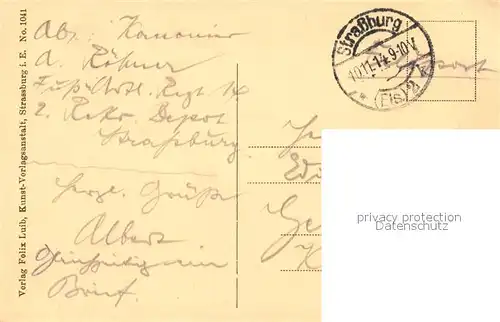 Verlag Felix Luib, Kunst-Verlagsanstalt, Strassburg i. E. No. 1041
Abs: Kanonier
A. Röhner
Fuß-Artl. Regt. 14
2. Rekr. Depot
Strassburg
Herzl. Grüße
Albert
Gleichzeitig ein
Brief.
Straßburg
10.11.14.9-10V.
* (Els) 2
privacy protection
Datenschutz